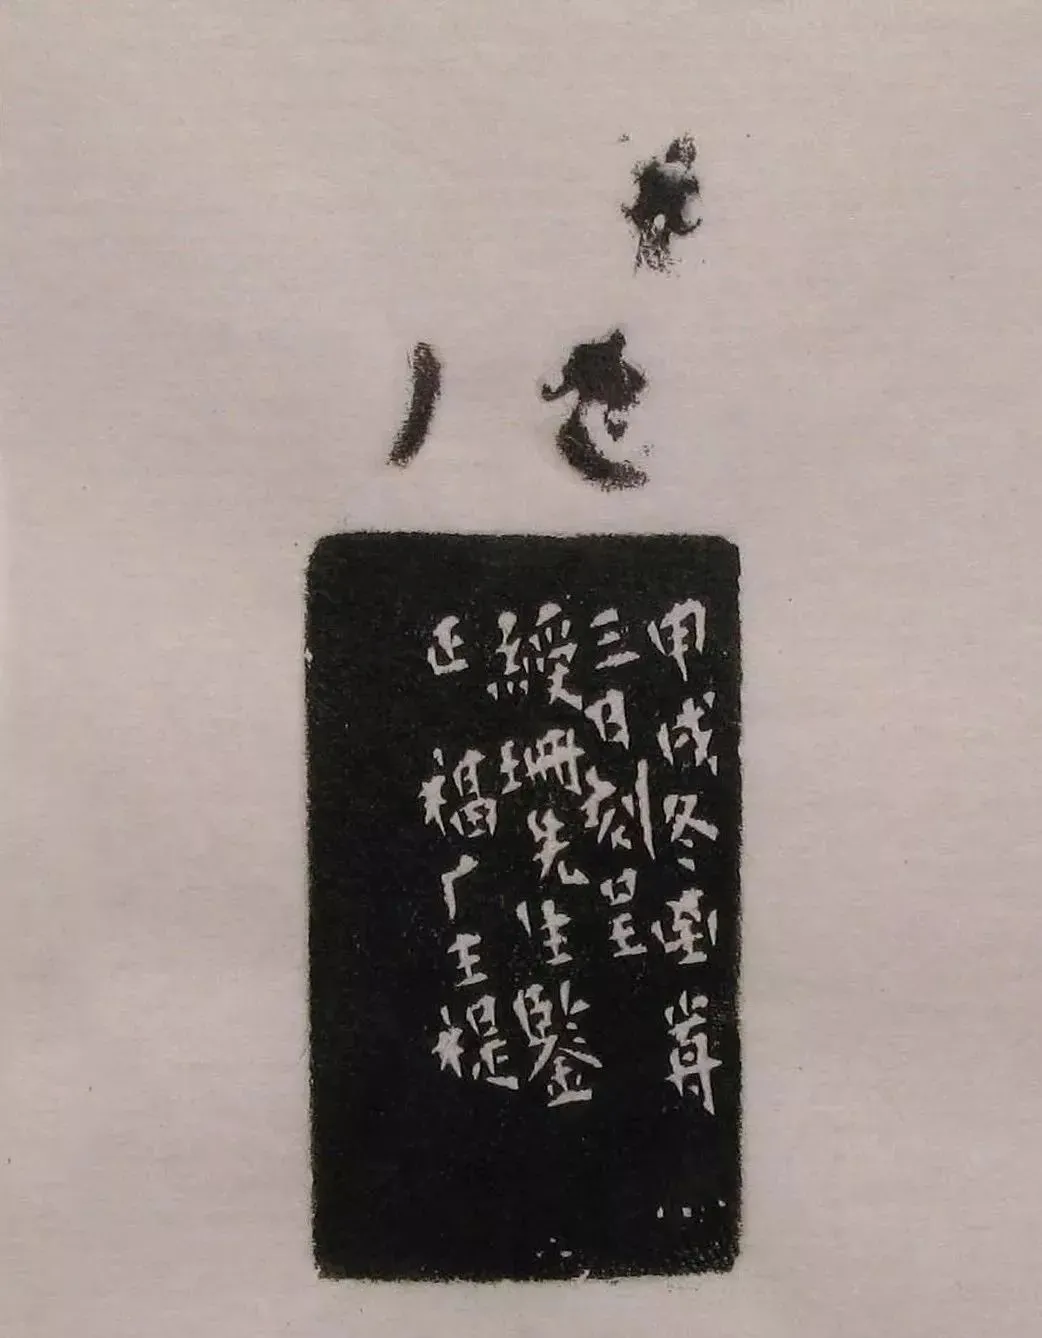 甲戌冬至前
三日刻呈
綬珊先生鑒
正 福厂王禔